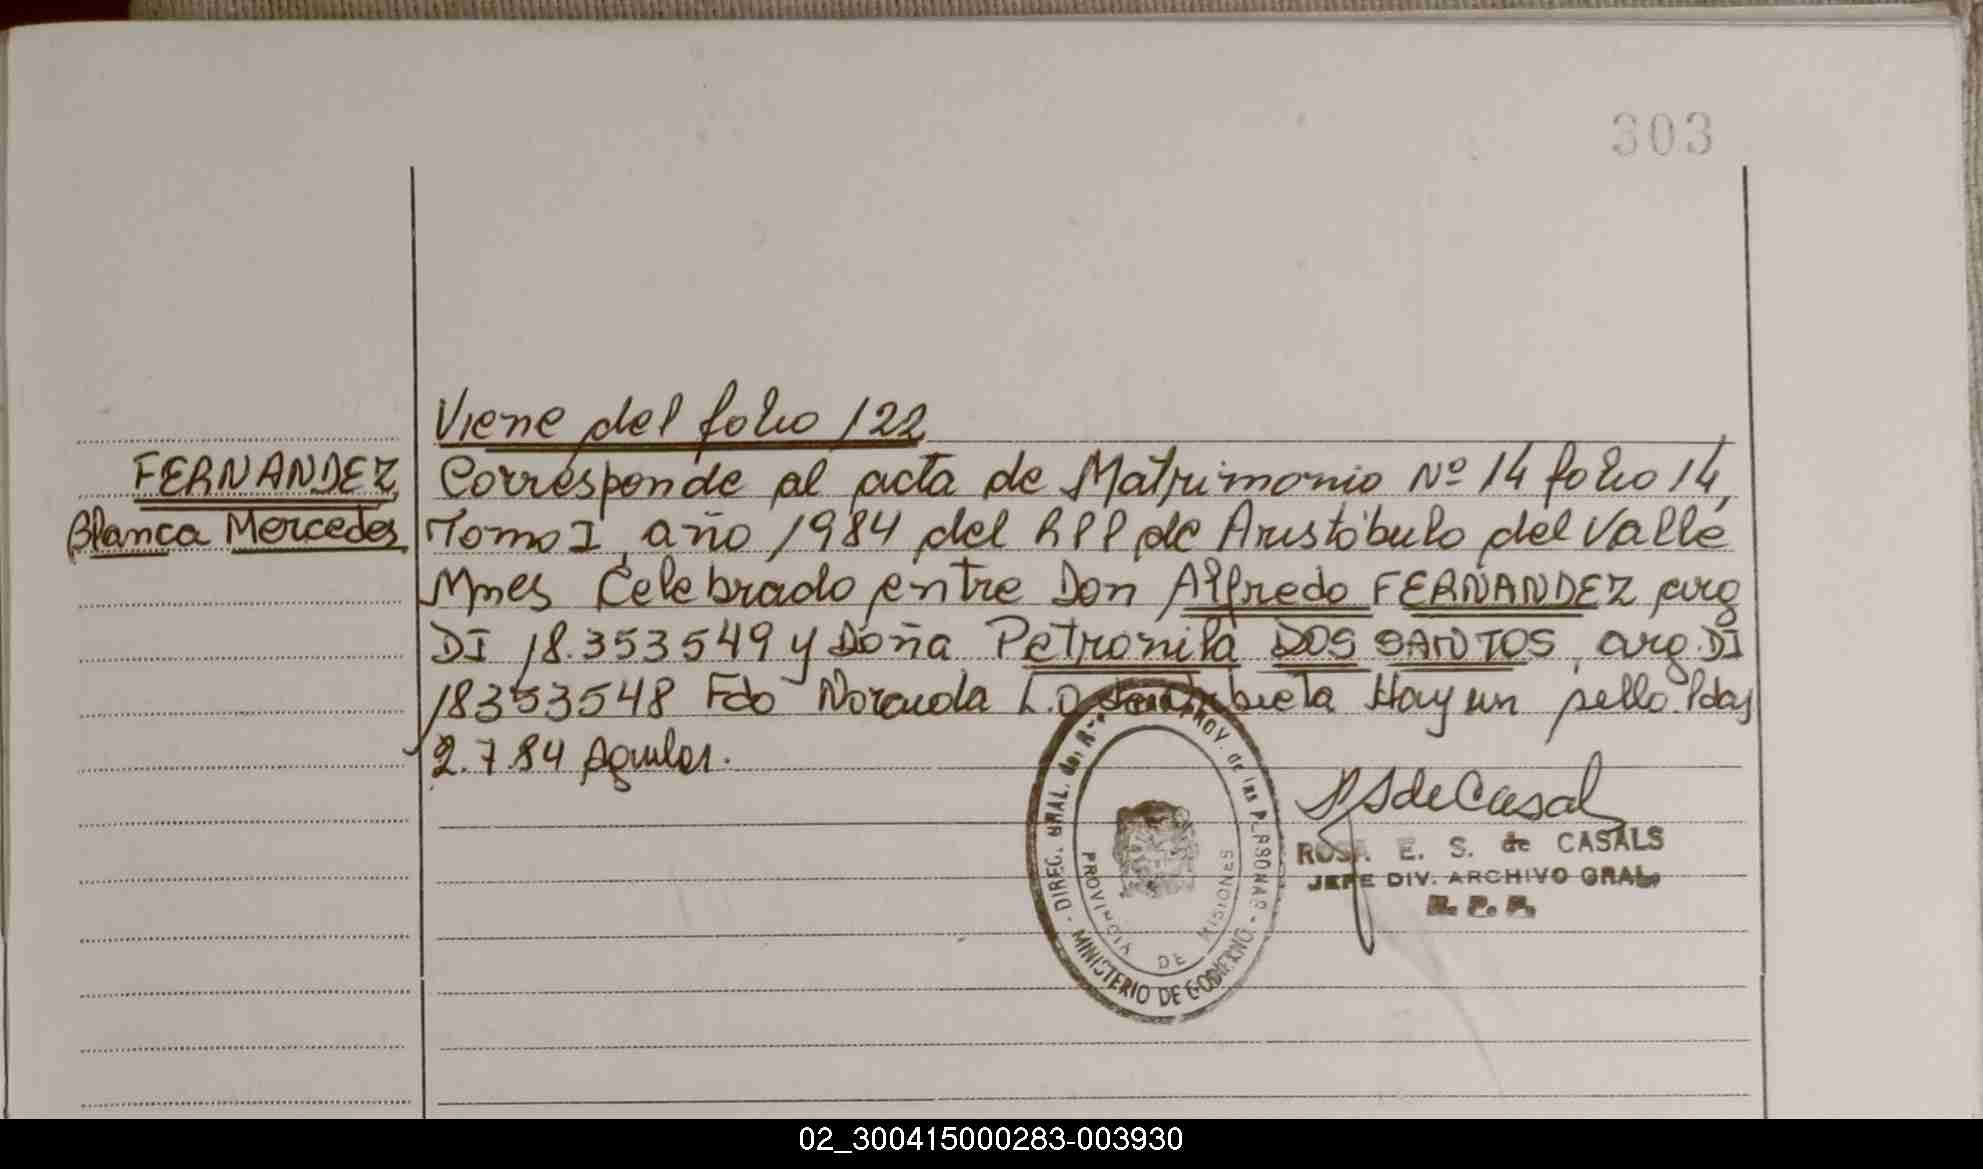 303
Viene del folio 122
FERNANDEZ Corresponde al acta de Matrimonio Nº 14 folio 14,
Blanca Mercedes Tomo I, año 1984 del RPP de Aristóbulo del Valle
Mnes Celebrado entre Don Alfredo FERNANDEZ arg
DI 18.353549 y Doña Petronila DOS SANTOS, arg. DI
18353548 Fdo L. Hay un sello. Pdas
2.7.84 Aguilar.
DIREC. GRAL. del PROV. de las PERSONAS
PROVINCIA DE MISIONES
MINISTERIO DE GOBIERNO
RS de Casal
ROSA E. S. de CASALS
JEFE DIV. ARCHIVO GRAL.
R. P. P.
02_300415000283-003930